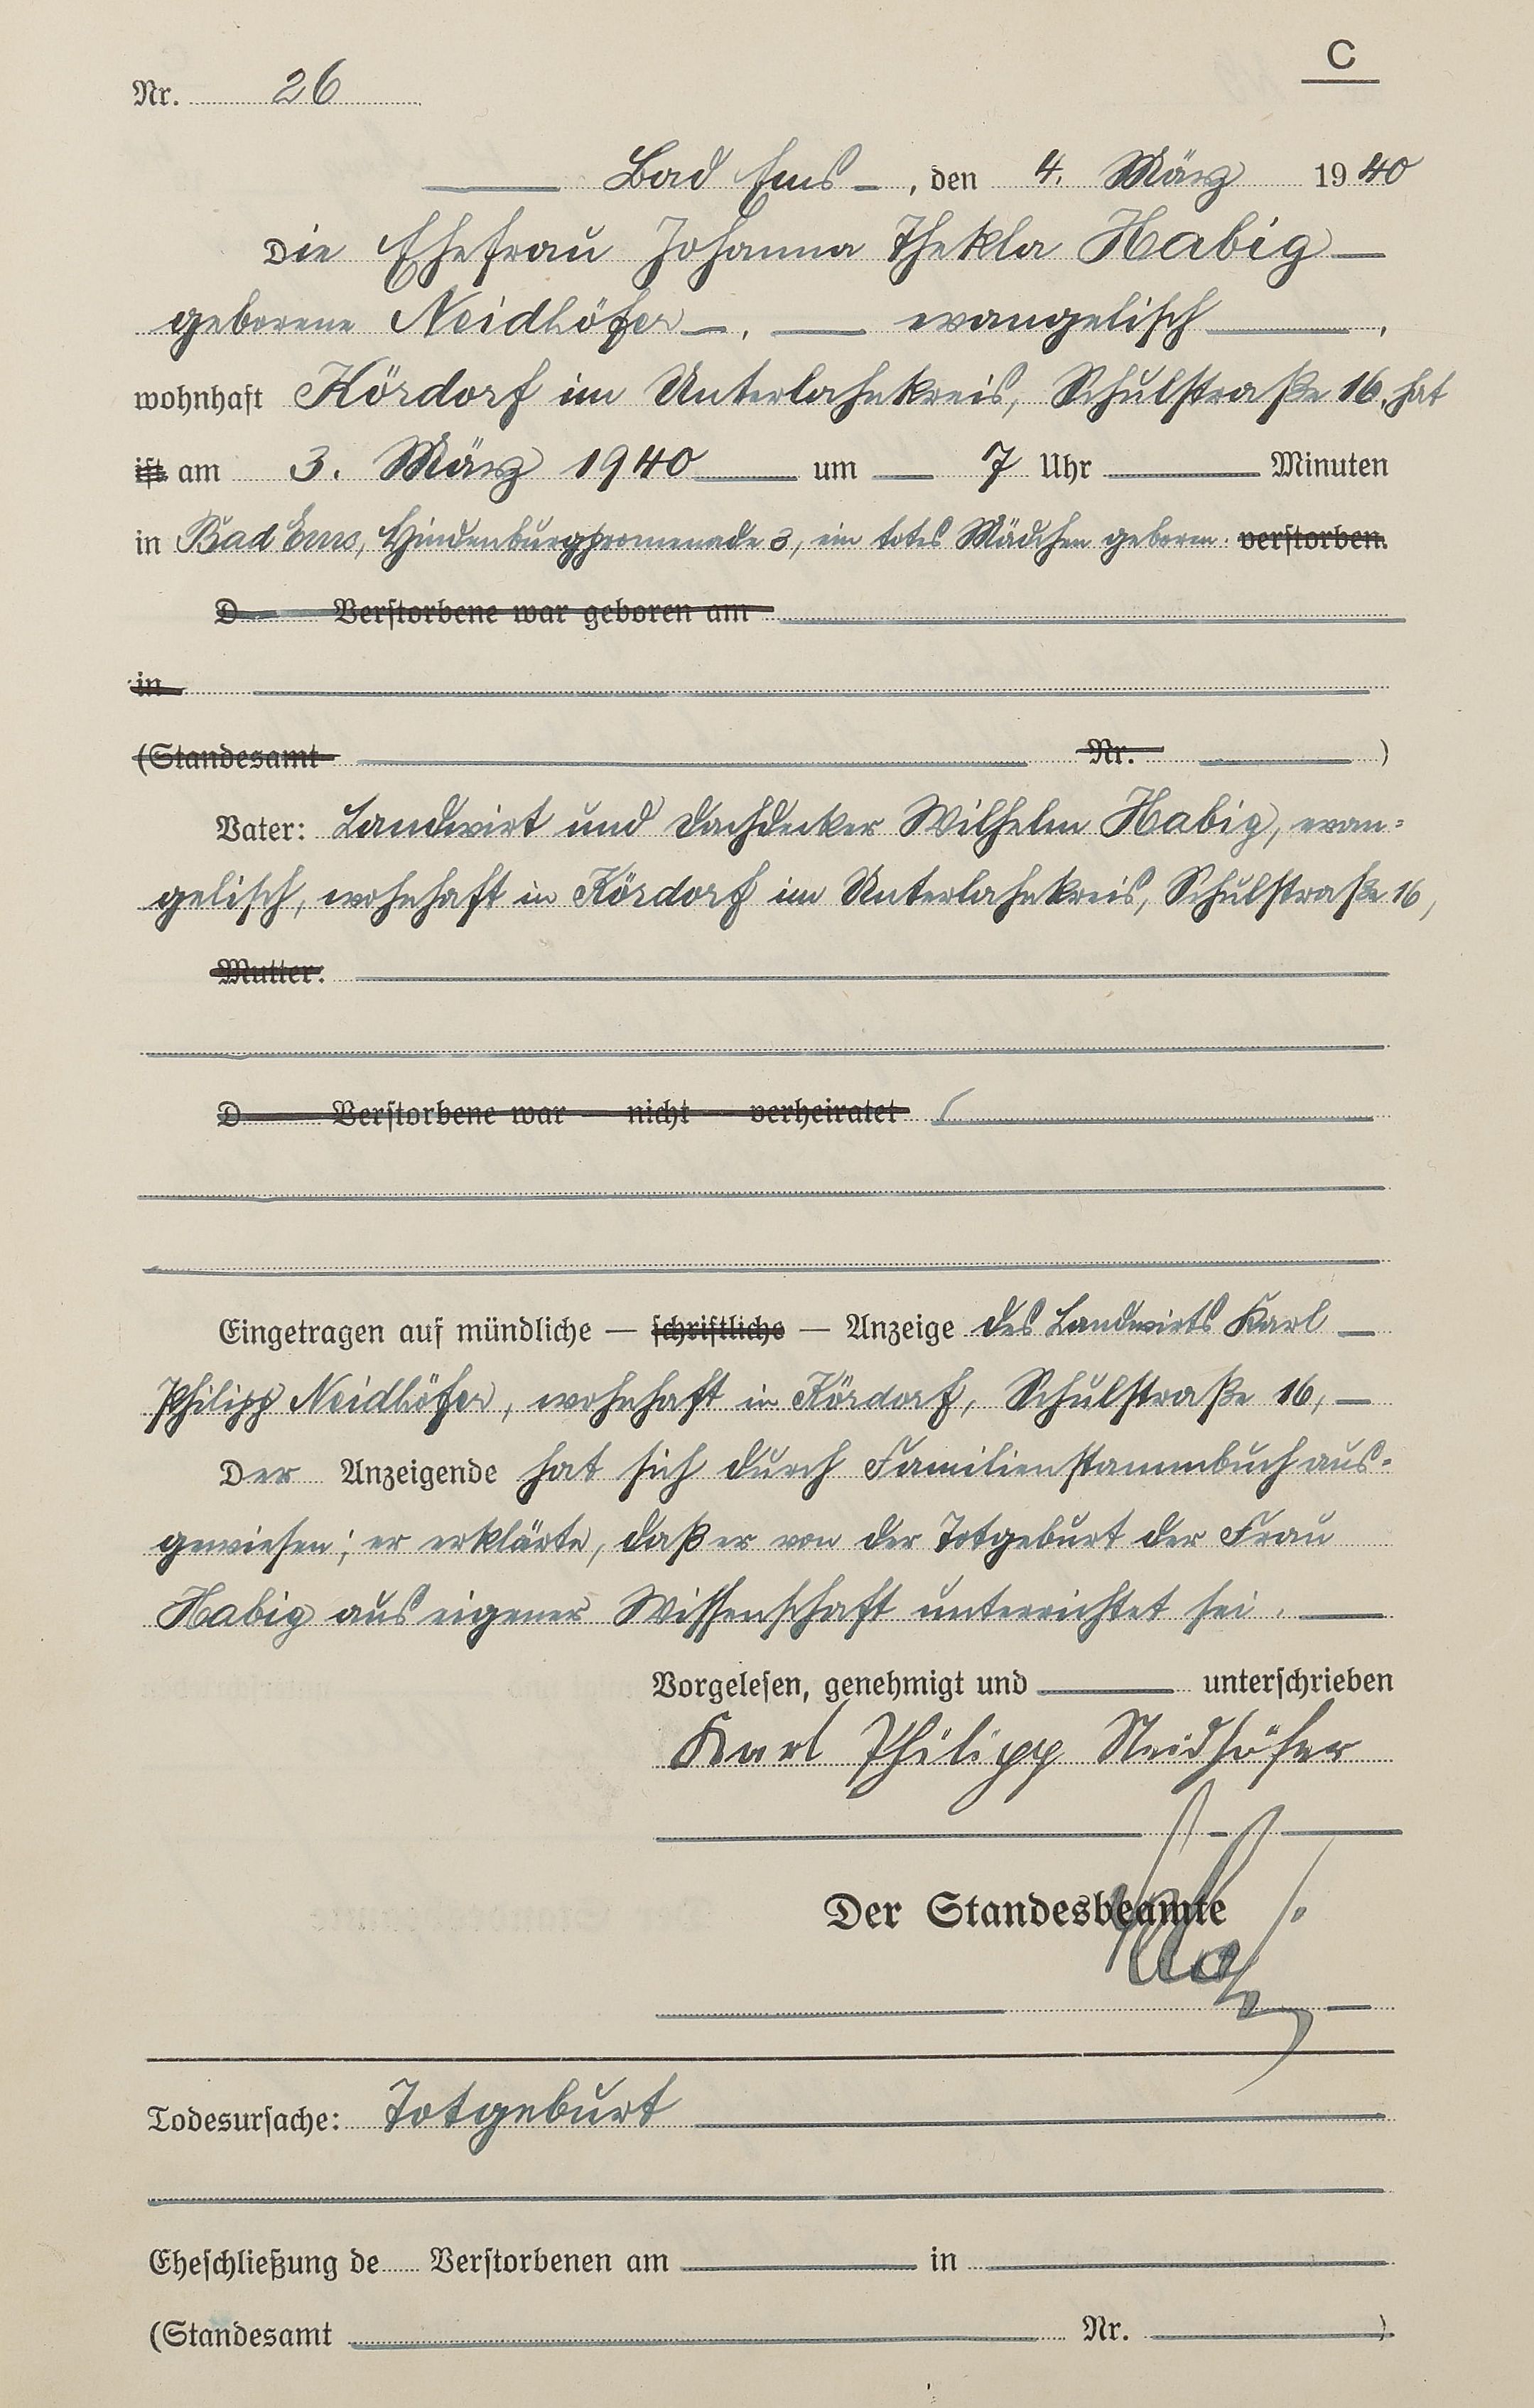 C
Nr. 26
Bad Ems, den 4. März 1940
Die Ehefrau Johanna Thekla Habig
geborene Neidhöfer, evangelisch,
wohnhaft Kördorf im Unterlahnkreis, Schulstraße 16, hat
ist am 3. März 1940 um 7 Uhr Minuten
in Bad Ems, Hindenburgpromenade 3, ein totes Mädchen geboren. verstorben.
D Verstorbene war geboren am
in
(Standesamt Nr. )
Vater: Landwirt und Dachdecker Wilhelm Habig, evan=
gelisch, wohnhaft in Kördorf im Unterlahnkreis, Schulstraße 16,
Mutter:
D Verstorbene war — nicht — verheiratet
Eingetragen auf mündliche — schriftliche — Anzeige des Landwirts Karl
Philipp Neidhöfer, wohnhaft in Kördorf, Schulstraße 16,
Der Anzeigende hat sich durch Familienstammbuch aus-
gewiesen; er erklärte, daß er von der Totgeburt der Frau
Habig aus eigener Wissenschaft unterrichtet sei.
Vorgelesen, genehmigt und unterschrieben
Karl Philipp Neidhöfer
Der Standesbeamte
Todesursache: Totgeburt
Eheschließung de Verstorbenen am in
(Standesamt Nr. )